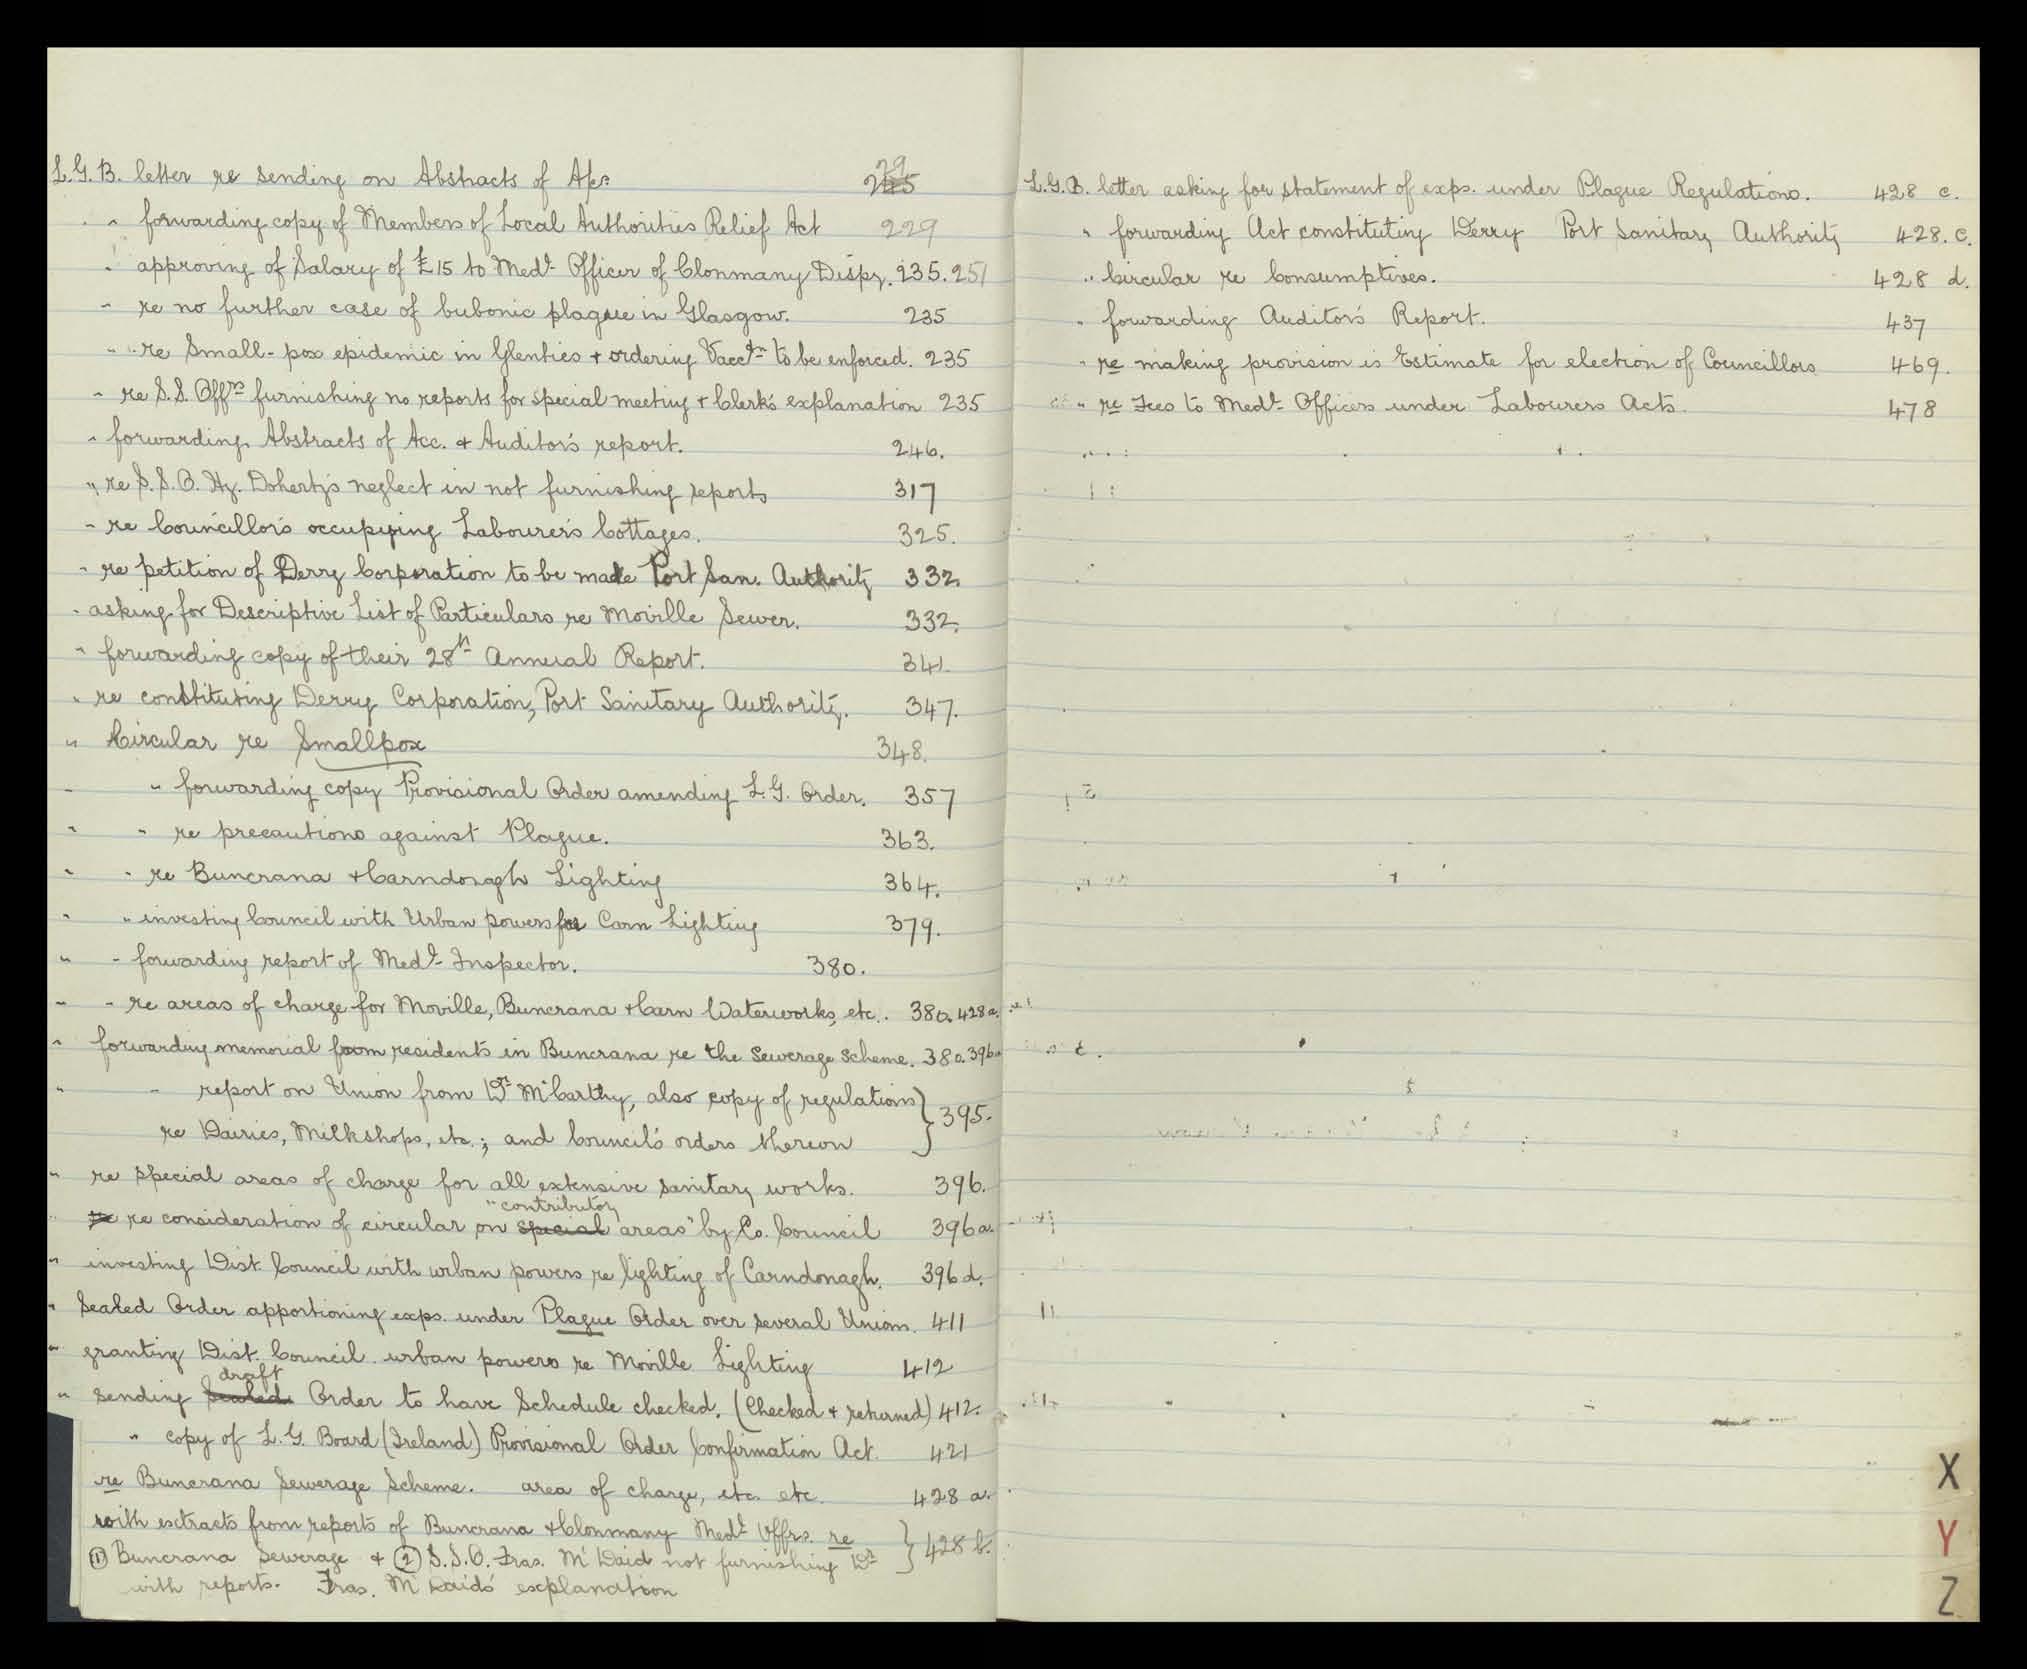 L.G.B. letter re sending on Abstracts of A/cs 229
" forwarding copy of Members of Local Authorities Relief Act 229
" approving of Salary of £15 to Medl. Officer of Clonmany Dispy. 235. 251
" re no further case of bubonic plague in Glasgow. 235
" re Small-pox epidemic in Glenties + ordering Vacctn to be enforced. 235
" re S.S. Offrs furnishing no reports for special meeting + Clerk's explanation 235
" forwarding Abstracts of Acc. + Auditor's report. 246.
" re S.S.O. Hy. Doherty's neglect in not furnishing reports 317
" re Councillors occupying Labourer's Cottages. 325.
" re petition of Derry Corporation to be made Port San. Authority 332
" asking for Descriptive List of Particulars re Moville Sewer. 332.
" forwarding copy of their 28th Annual Report. 341.
" re constituting Derry Corporation, Port Sanitary Authority. 347.
" Circular re Smallpox 348.
" " forwarding copy Provisional Order amending L.G. Order. 357
" " re precautions against Plague. 363.
" " re Buncrana + Carndonagh Lighting 364.
" " investing Council with Urban powers for Carn Lighting 379.
" " forwarding report of Medl. Inspector. 380.
" " re areas of charge for Moville, Buncrana + Carn Waterworks, etc. 380. 428a.
" forwarding memorial from residents in Buncrana re the Sewerage Scheme. 380. 396a
" " report on Union from Dr. McCarthy, also copy of regulations } 395.
re Dairies, Milkshops, etc.; and Council's orders thereon
" re special areas of charge for all extensive sanitary works. 396.
" re consideration of circular on special "contributory areas" by Co. Council 396a.
" investing Dist. Council with urban powers re lighting of Carndonagh. 396d.
" Sealed Order apportioning exps. under Plague Order over several Unions. 411
" granting Dist. Council urban powers re Moville Lighting 412
" sending Sealed draft Order to have Schedule checked. (Checked + returned) 412.
" copy of L.G. Board (Ireland) Provisional Order Confirmation Act. 421
re Buncrana Sewerage Scheme. area of charge, etc. etc. 428 a.
with extracts from reports of Buncrana + Clonmany Medl. Offrs. re } 428 b.
(1) Buncrana Sewerage + (2) S.S.O. Fras. McDaid not furnishing Dr
with reports. Fras. McDaid's explanation
L.G.B. letter asking for statement of exps. under Plague Regulations. 428 c.
" forwarding Act constituting Derry Port Sanitary Authority 428. c.
" Circular re Consumptives. 428 d.
" forwarding Auditor's Report. 437
" re making provision in Estimate for election of Councillors 469.
" re Fees to Medl. Officers under Labourers Acts. 478
X
Y
Z